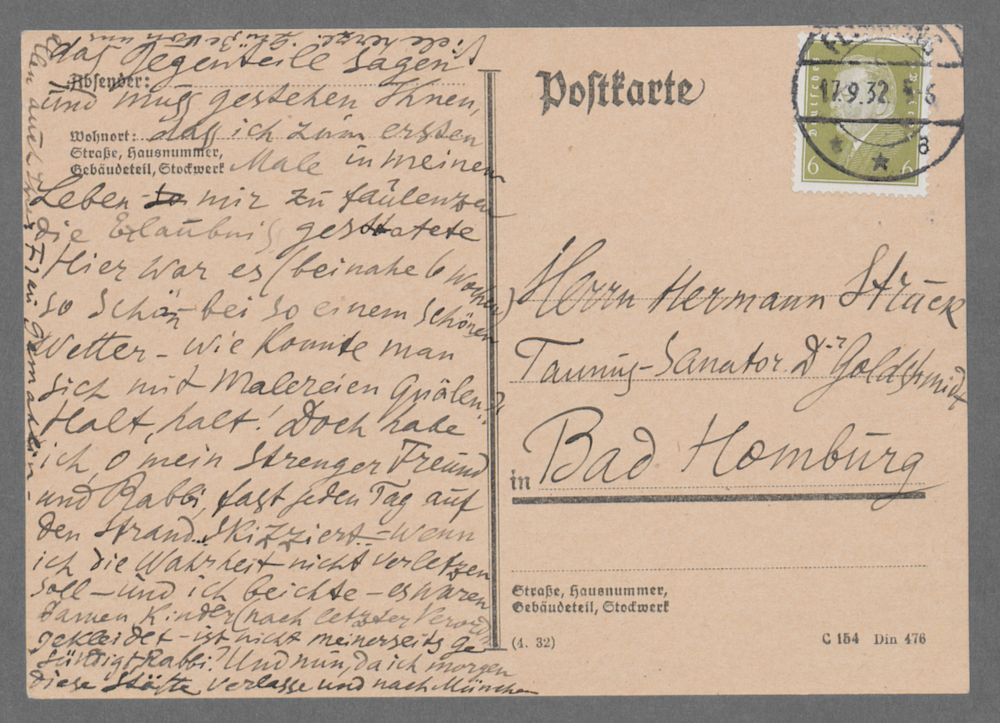 das Gegenteile sagen
Absender:
und muss gestehen Ihnen,
Wohnort: das ich züm ersten
Straße, Hausnummer,
Gebäudeteil, Stockwerk Male in meinem
Leben mir zü faülenzen
die Erlaübnis gestatete
Hier war es (beinahe 6 Wochen)
so schön bei so einem schönen
Wetter – wie konnte man
sich mit Malereien Quälen
Halt, halt! Doch habe
ich, o mein strenger Freünd
und Rabbi, fast jeden Tag auf
den Strand skizziert – Wenn
ich die Wahrheit nicht verletzen
soll – und ich beichte – es waren
Damen Kinder (nach letzter
gekleidet – ist nicht meinerseits ge-
sündigt Rabbi? Und nun, da ich morgen
diese Stätte verlasse und nach München
viele herzl. Grüße von uns
allen auch Ihrer Fraü Gemahlin –
Postkarte
17.9.32. 5-6
8
Deutsches Reich
6 6
Herrn Hermann Strück
Taunus-Sanator. Dr. Goldschmidt
in Bad Homburg
Straße, Hausnummer,
Gebäudeteil, Stockwerk
(4. 32)
C 154 Din 476